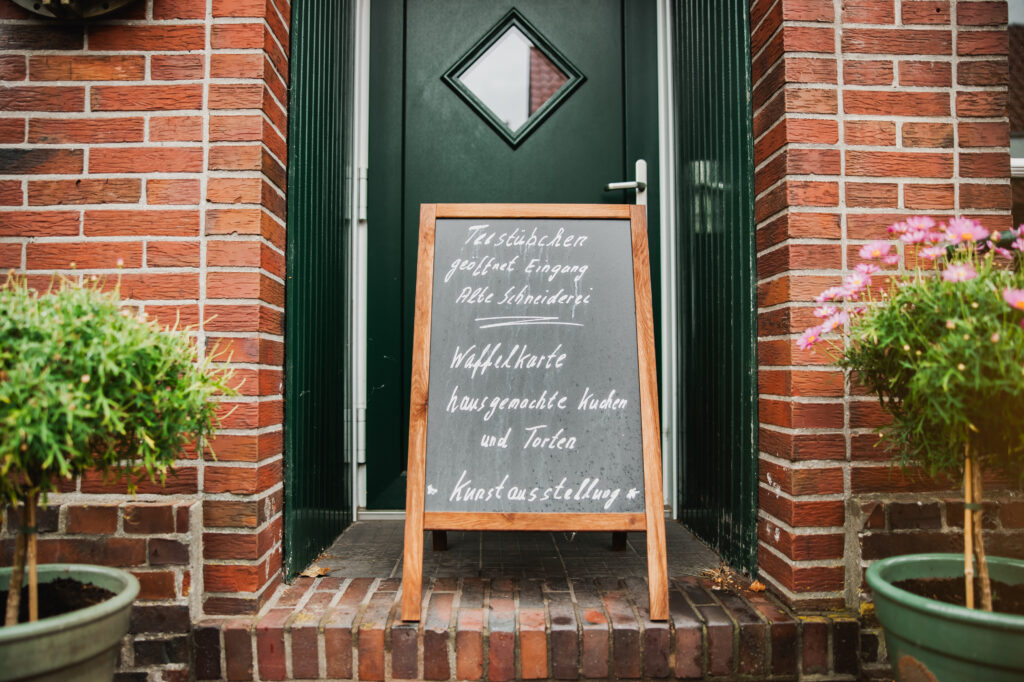 Teestübchen
geöffnet Eingang
Alte Schneiderei
Waffelkarte
hausgemachte Kuchen
und Torten
Kunstausstellung